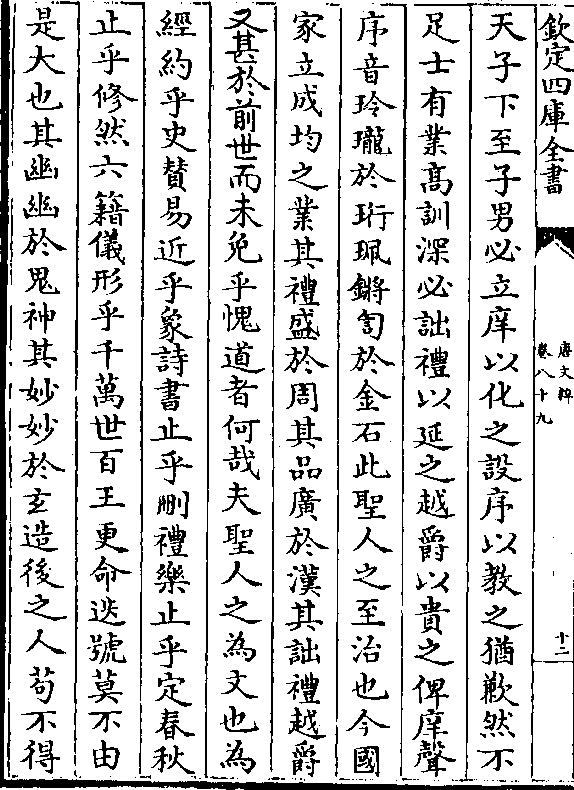 欽定四庫全書
唐文粹
卷八十九
十二
天子下至子男必立庠以化之設序以教之猶歉然不
足士有業髙訓深必詘禮以延之越爵以貴之俾庠聲
序音玲瓏於珩珮鏘訇於金石此聖人之至治也今國
家立成均之業其禮盛於周其品廣於漢其詘禮越爵
又甚於前世而未免乎愧道者何哉夫聖人之為文也為
經約乎史賛易近乎象詩書止乎刪禮樂止乎定春秋
止乎修然六籍儀形乎千萬世百王更命迭號莫不由
是大也其幽幽於鬼神其妙妙於𤣥造後之人茍不得